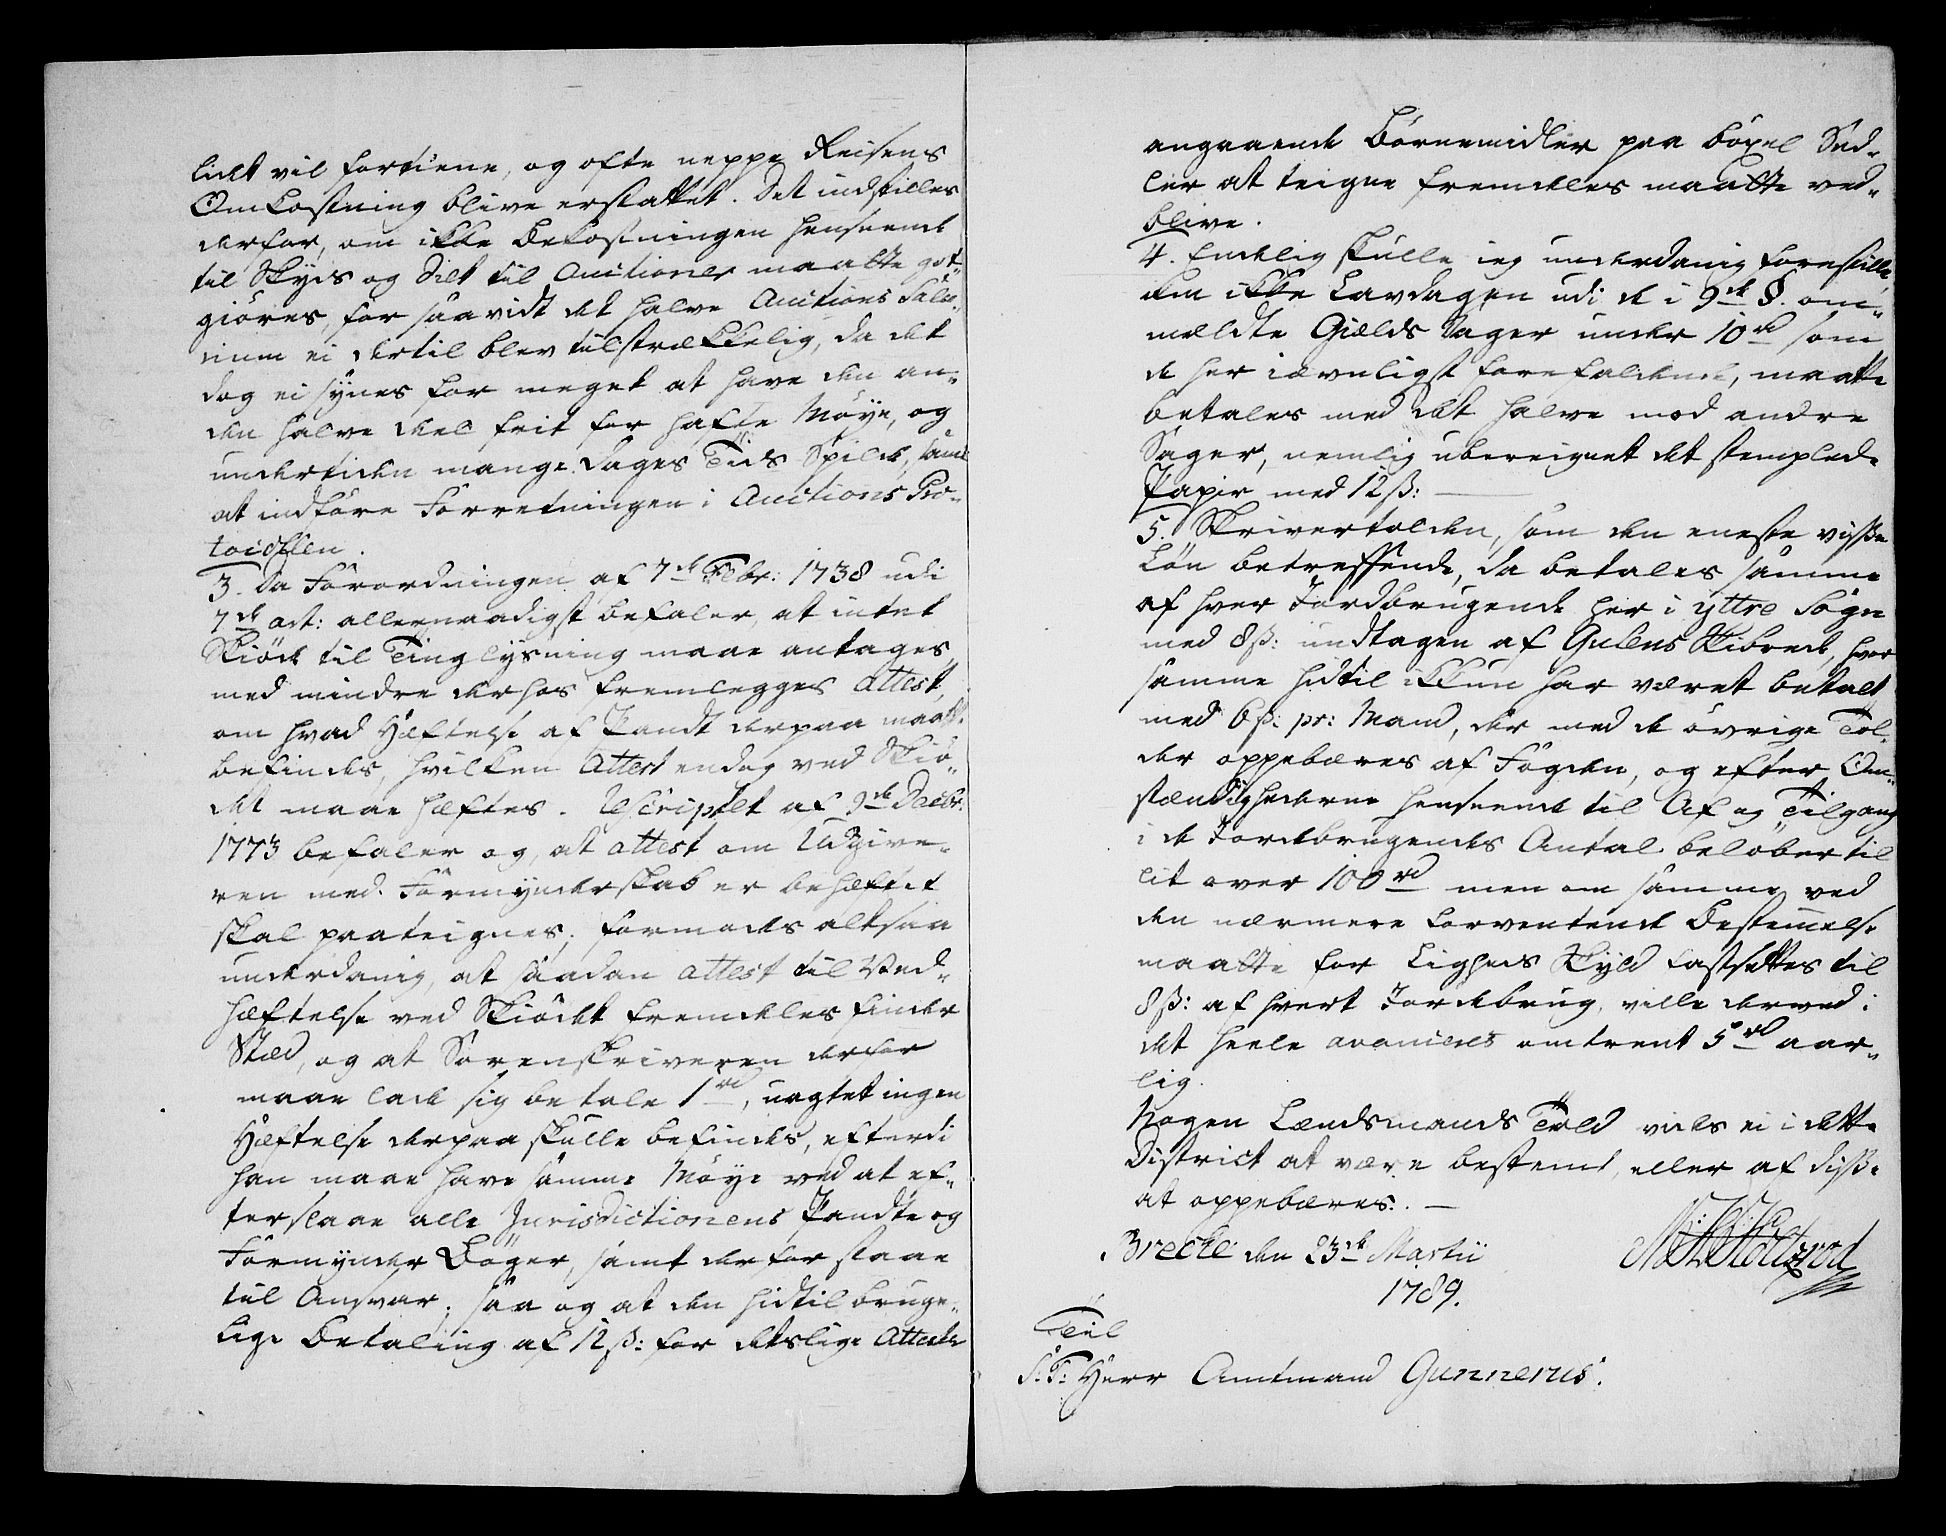 lidt vil fortiene, og ofte neppe Reisens
Omkostning blive erstattet. Det indstilles
derfor, om ikke Bekostningen henseende
til Skyds og Diet til Auctioner maatte got-
giöres, for saavidt det halve Auctions Sala-
rium ei dertil blev tilstrækkelig, da det
dog ei synes for meget at have den an-
den halve deel frit for hafte Möye, og
undertiden mange Dages Tids Spilde, samt
at indföre Forretningen i Auctions Pro-
tocollen.
3. Da Forordningen af 7de Febr: 1738 udi
7de art: allernaadigst befaler, at intet
Skiöde til Tinglysning maae antages
med mindre derhos fremlegges attest,
om hvad Hæftelse af Pandt derpaa maatte
befindes, hvilken Attest endog ved Skiö-
det maae hæftes. Rescriptet af 9de Decbr:
1773 befaler og, at attest om Udgive-
ren med Formynderskab er behæftet
skal paateignes; formodes altsaa
underdanig, at saadan attest til Ved-
hæftelse ved Skiödet fremdeles finder
Stæd, og at Sorenskriveren derfor
maae lade sig betale 1 rd, uagtet ingen
Hæftelse derpaa skulle befindes, efterdi
han maae have samme Möye ved at ef-
terslaae alle Jurisdictionens Pandte og
Formynder Böger, samt derfor staae
til Ansvar; saa og at den hidtil bruge-
lige Betaling af 12 ß: for deslige Attester
angaaende Börnemidler paa böxel Sed-
ler at teigne fremdeles maatte ved-
blive.
4. Endelig skulle ieg underdanig forestille,
om ikke Lavdagen udi de i 9de §. om-
mældte Giælds Sager under 10 rd som
de her iævnligst forefaldende, maatte
betales med det halve mod andre
Sager, nemlig ubereignet det stemplede
Papir med 12 ß: —
5. Skrivertolden, som den eneste visse
Lön betreffende, da betales samme
af hver Jordbrugende her i yttre Sogn
med 8 ß: undtagen af Gulens Skibrede, hvor
samme hidtil ikkun har været betalt
med 6 ß: pr: Mand, der med de övrige Tol-
der oppebæres af Fogden, og efter Om-
stændighederne henseende til Af og Tilgang
i de Jordebrugendes Antal belöber til
lit over 100 rd men om samme ved
den nærmere forventende Bestemmelse
maatte for Ligheds Skyld fastsettes til
8 ß: af hvert Jordebrug, ville derved i
det heele avanceres omtrent 5 rd aar-
lig.
Nogen Lændsmands Told vides ei i dette
District at være bestemt, eller af disse
at oppebæres. —
Brecke den 23de Martii
1789.
Til
S: T: Herr Amtmand Gunnerus.